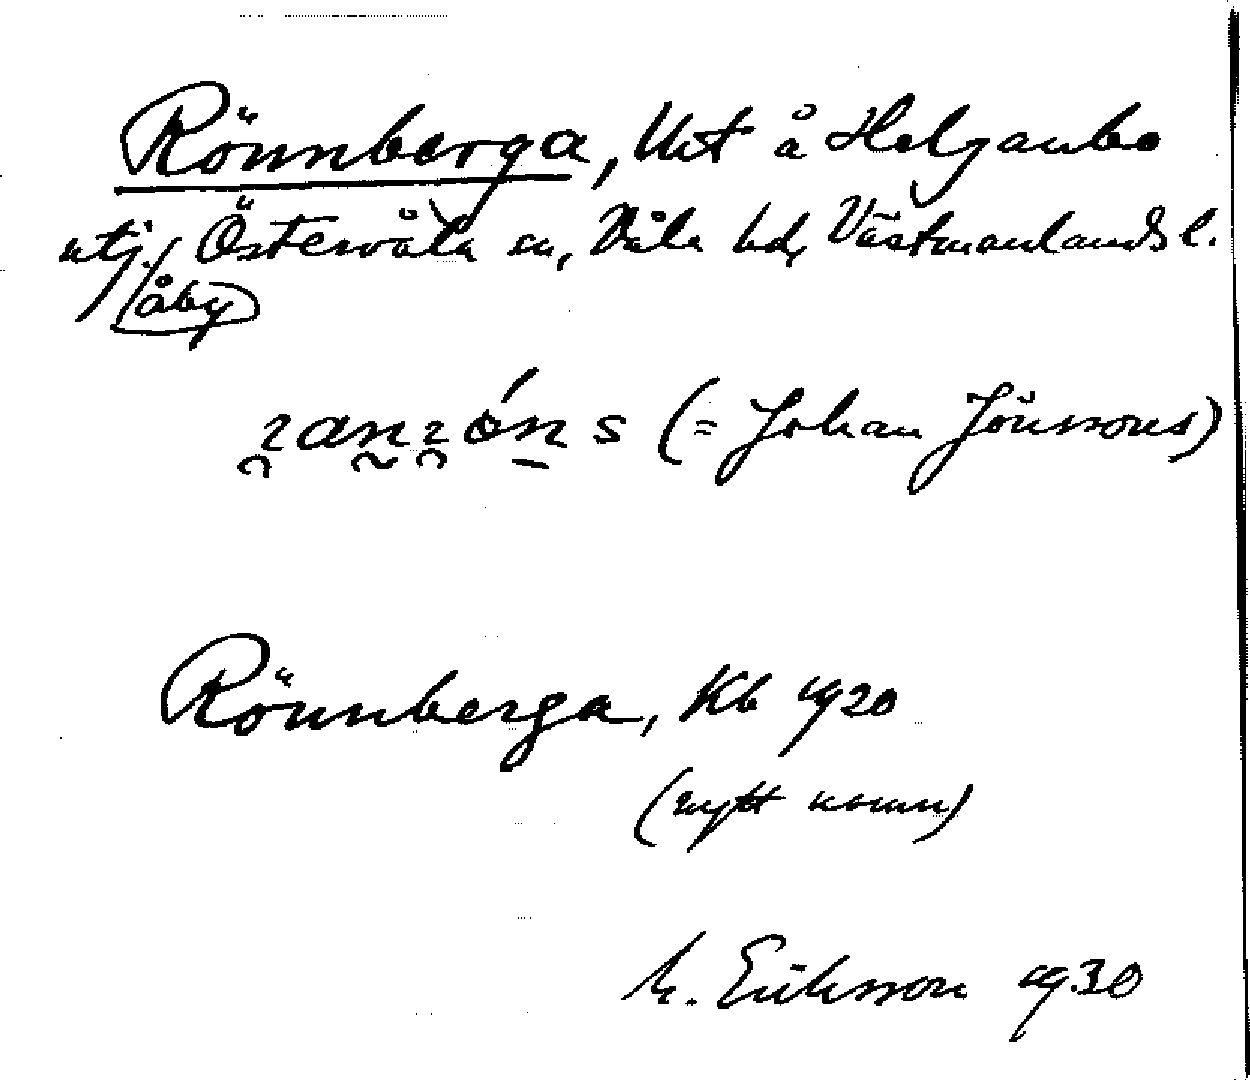 Rönnberga, Utt å Helganbo
utj. Östervåla sn, Våla hd, Västmanlands l.
åby
(= Johan Jönssons)
Rönnberga, Kb 1920
(nytt namn)
M. Eriksson 1930